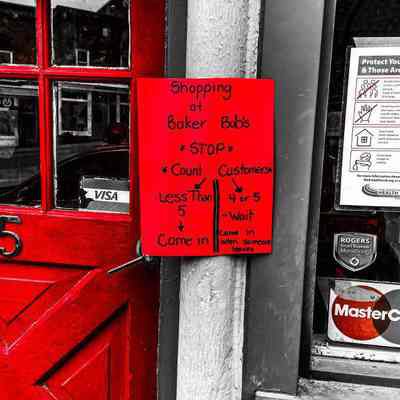 Shopping
at
Baker Bob's
* STOP *
* Count Customers *
Less Than 4 or 5
5 - Wait
Come in Come in
when someone
leaves
VISA
5
Protect You
& Those Ar
HEALTH
ROGERS
MasterC